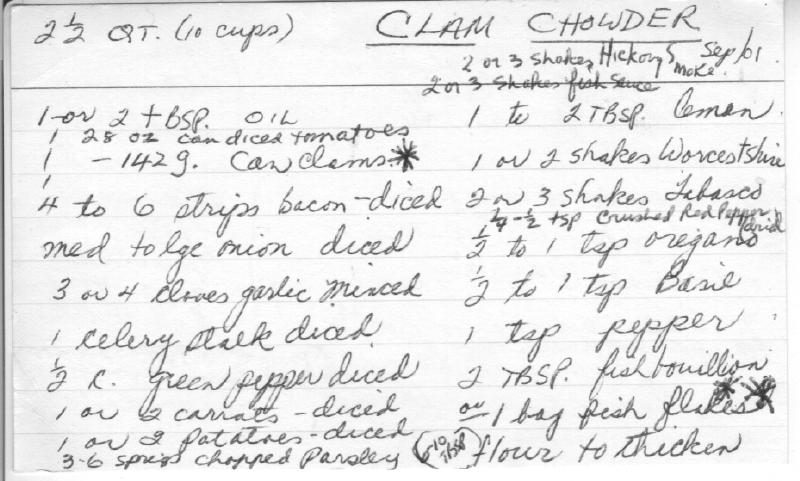 2 1/2 QT. (10 cups) CLAM CHOWDER
2 or 3 shakes Hickory Smoke. Sep/01
2 or 3 shakes fish sauce
1 or 2 TBSP. OIL
1 28 oz can diced tomatoes
1 - 142 g. Can Clams *
4 to 6 strips bacon - diced
med to lge onion diced
3 or 4 cloves garlic minced
1 celery stalk diced
1/2 c. green pepper diced
1 or 2 carrots - diced
1 or 2 potatoes - diced
3-6 sprigs chopped Parsley
1 to 2 TBSP. lemon
1 or 2 shakes Worcestshire
2 or 3 shakes Tabasco
1/4 - 1/2 tsp crushed Red Pepper
1/2 to 1 tsp oregano
1/2 to 1 tsp Basil
1 tsp pepper
2 TBSP. fish bouillion
or 1 bag fish flakes **
(5-10 TBSP) flour to thicken